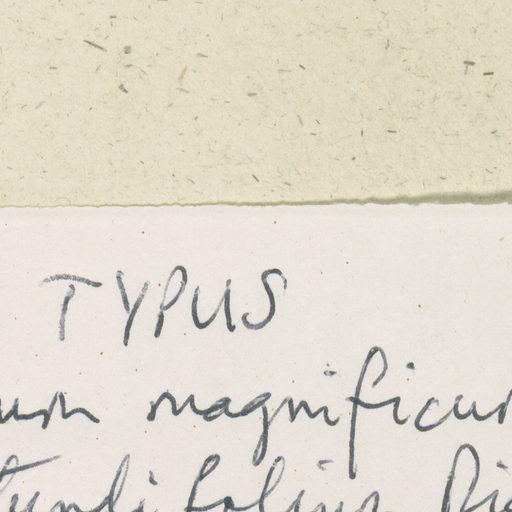 TYPUS
um magnificum
tundifolium Di